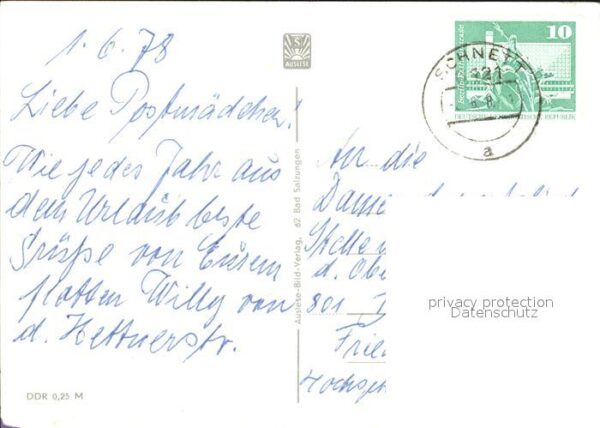 1.6.78
Liebe Postmädchen!
Wie jedes Jahr aus
dem Urlaub beste
Grüße von Eurem
flotten Willy von
d. Hettnerstr.
DDR 0,25 M
AUSLESE
Auslese-Bild-Verlag, 62 Bad Salzungen
10
DEUTSCHE DEMOKRATISCHE REPUBLIK
SCHNETT
a
An die
Dame
Stelle
d. Obe
801
Frie
Hochge
privacy protection
Datenschutz